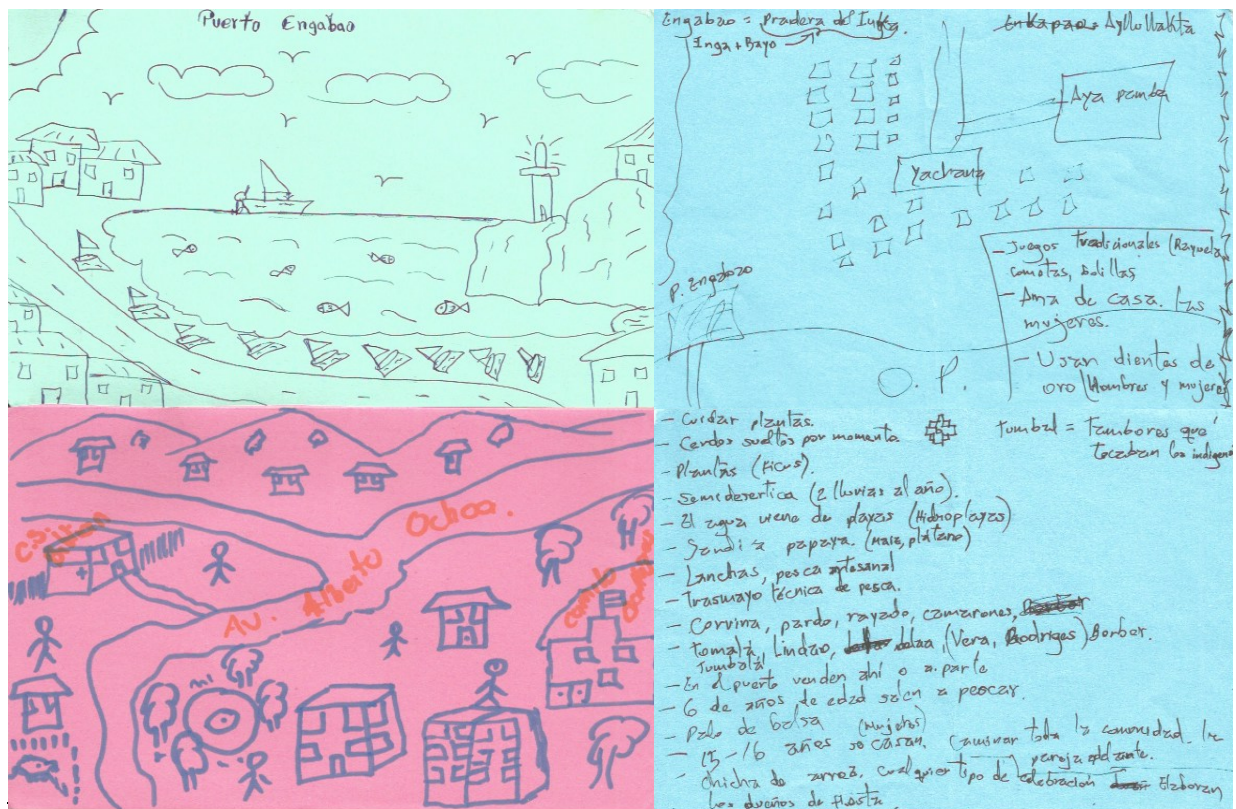 Puerto Engabao
Engabao = Pradera del Inka.
Inga + Bayo
Enkapao = Ayllu llakta
Aya pamba
Yachana
P. Engabao
O. P.
- Juegos tradicionales (Rayuela,
cometas, bolillas,
- Ama de casa. las
mujeres.
- Usan dientes de
oro (Hombres y mujeres
C.S.
Av. Alberto Ochoa.
- Cuidar plantas.
- Cerdos sueltos por momento
- Plantas (Ficus).
- Semidesertica (2 lluvias al año).
- El agua viene de playas (Hidroplayas)
- Sandia papaya. (Maiz, plátano)
- Lanchas, pesca artesanal
- Trasmayo técnica de pesca.
- Corvina, pardo, rayado, camarones,
- Tomalá, Lindao, (Vera, Rodriges) Borbor.
Tumbalá
- En el puerto venden ahí o a parte
- 6 de años de edad salen a pescar.
- Palo de balsa (mujeres)
- 15-16 años se casan. Caminar toda la comunidad. la
pareja adelante.
- Chicha de arroz. cualquier tipo de celebración Elaboran
los dueños de fiesta.
Tumbal = Tambores que
tocaban los indigena